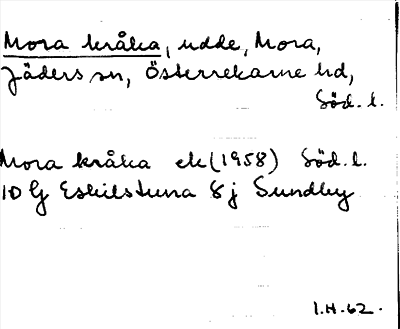 Mora kråka, udde, Mora,
Jäders sn, Österrekarne hd,
Söd. l.
Mora kråka ek (1958) Söd. l.
10 G Eskilstuna 8 j Sundby
I.H.-62.